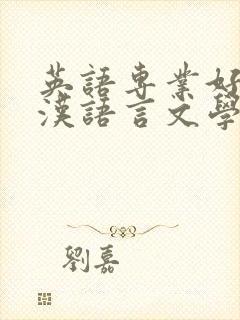 英語專業好
漢語言文學
劉嘉